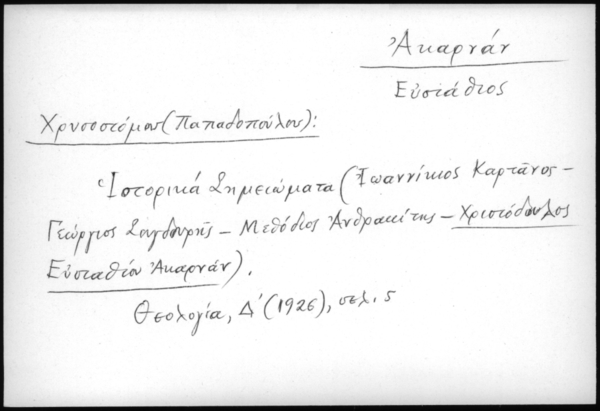 Ἀκαρνάν
Εὐστάθιος
Χρυσοστόμου (Παπαδοπούλου):
Ἱστορικὰ Σημειώματα (Ἰωαννίκιος Καρτᾶνος –
Γεώργιος Σουγδουρῆς – Μεθόδιος Ἀνθρακίτης – Χριστόδουλος
Εὐσταθίου Ἀκαρνάν).
Θεολογία, Δ' (1926), σελ. 5